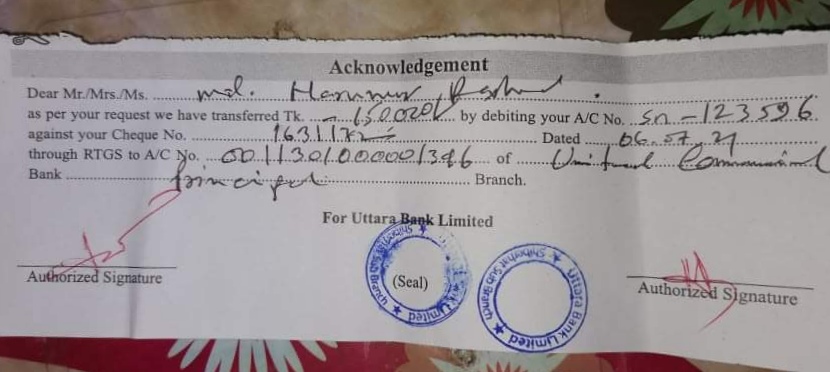 Acknowledgement
Dear Mr./Mrs./Ms. md. Harunur Rashid
as per your request we have transferred Tk. 150020/ by debiting your A/C No. Sn - 123596
against your Cheque No. Dated 06.07.21
through RTGS to A/C No. 0011301000001346 of United Commercial
Bank Principal Branch.
For Uttara Bank Limited
Authorized Signature
(Seal)
Authorized Signature
Uttara Bank Limited
Sub Branch